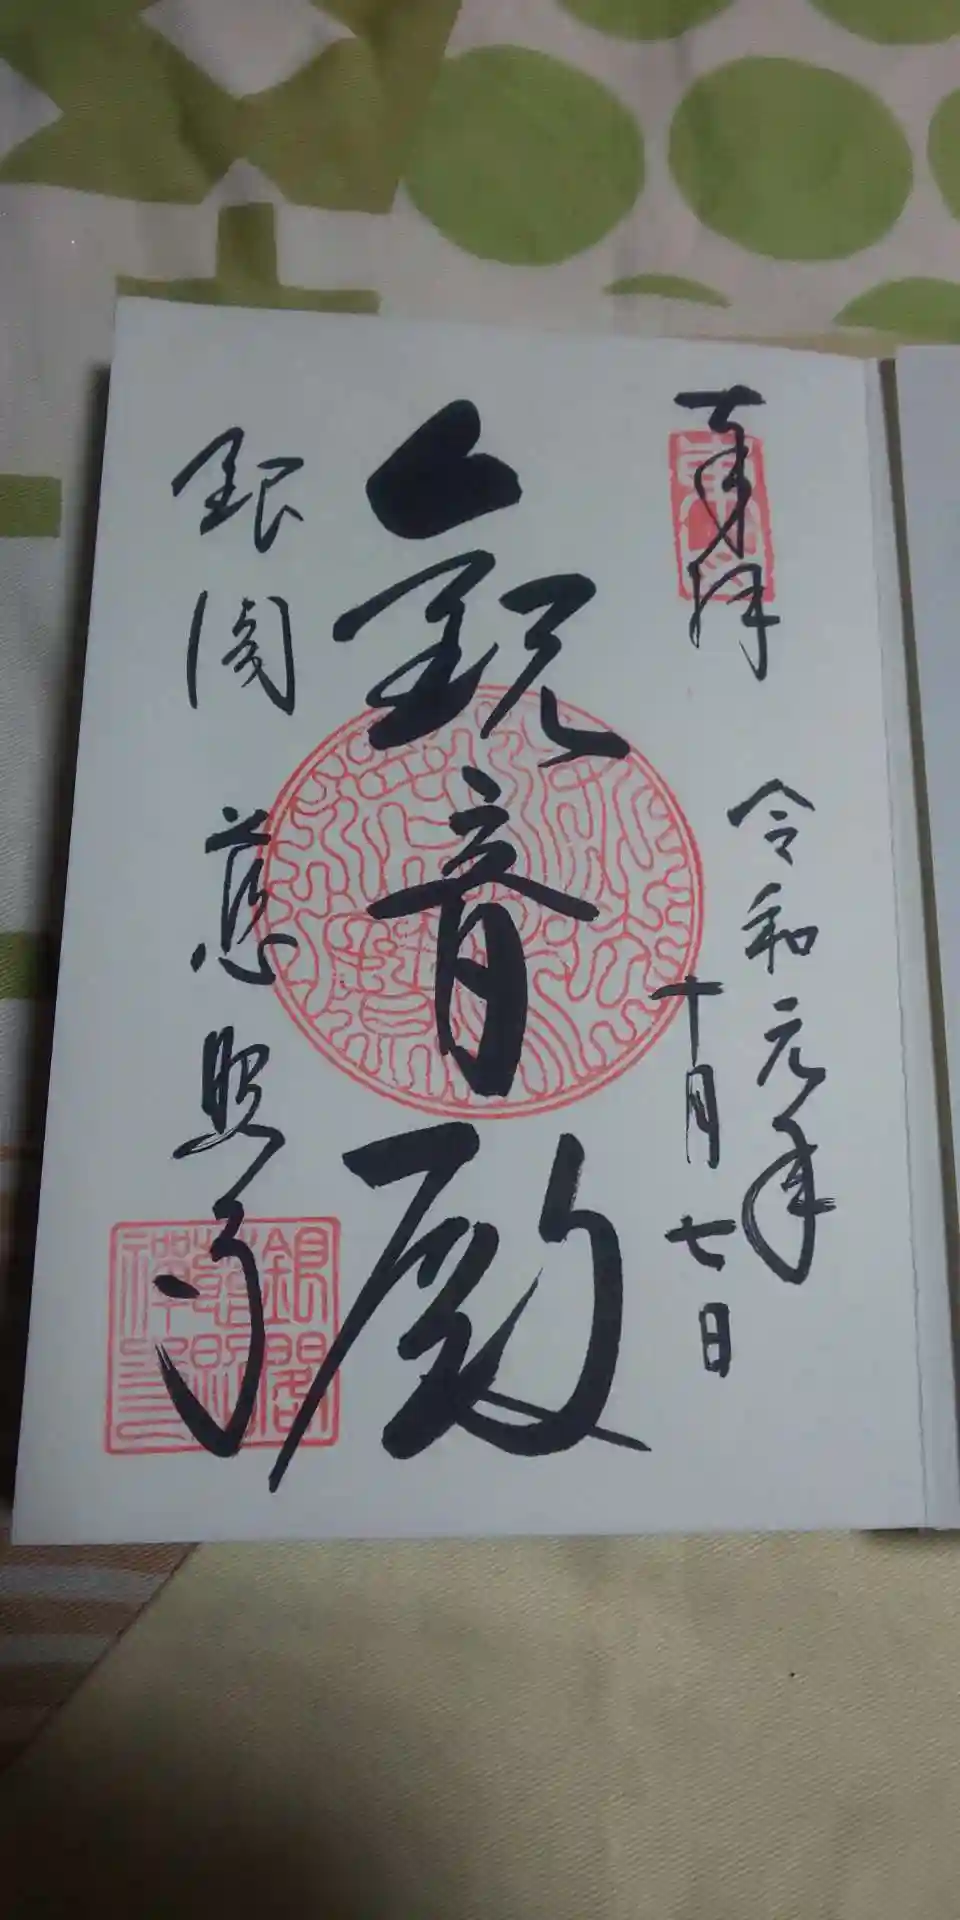 奉拝
令和元年
十月七日
観音殿
銀閣 慈照寺
銀閣
慈照
禅寺